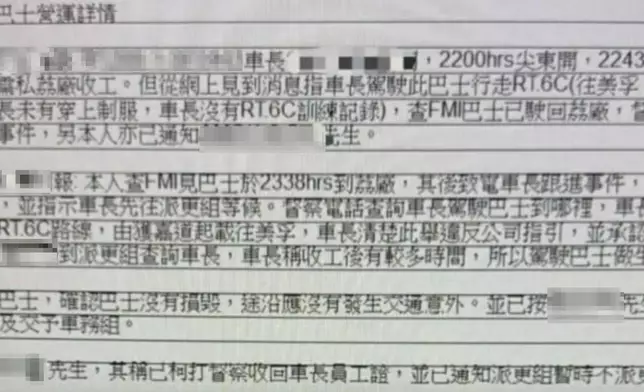 巴士營運詳情
車長
，2200hrs尖東開，2243
私荔廠收工。但從網上見到消息指車長駕駛此巴士行走RT.6C(往美孚
長未有穿上制服，車長沒有RT.6C訓練記錄)，查FMI巴士已駛回荔廠，
事件，另本人亦已通知
先生。
報: 本人查FMI見巴士於2338hrs到荔廠，其後致電車長跟進事件，
，並指示車長先往派更組等候。督察電話查詢車長駕駛巴士到哪裡，車長
RT.6C路線，由獲嘉道起載往美孚，車長清楚此舉違反公司指引，並承認
到派更組查詢車長，車長稱收工後有較多時間，所以駕駛巴士做
巴士，確認巴士沒有損毀，途沿應沒有發生交通意外。並已按
先
及交予車務組。
先生，其稱已柯打督察收回車長員工證，並已通知派更組暫時不派